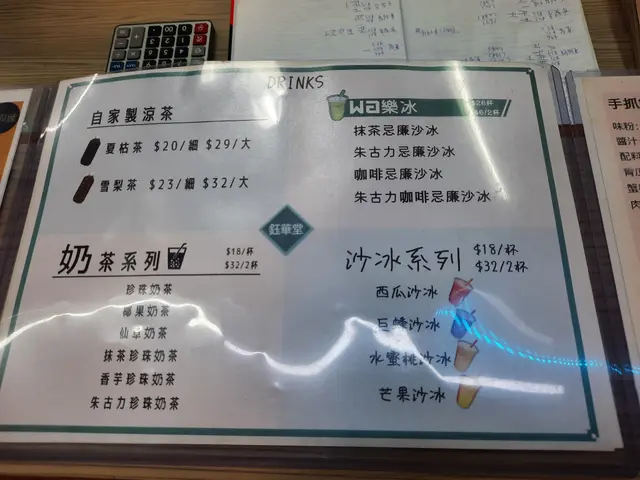 DRINKS
自家製涼茶
夏枯茶 $20/細 $29/大
雪梨茶 $23/細 $32/大
樂冰
抹茶忌廉沙冰
朱古力忌廉沙冰
咖啡忌廉沙冰
朱古力咖啡忌廉沙冰
鈺華堂
奶茶系列
$18/杯
$32/2杯
珍珠奶茶
椰果奶茶
仙草奶茶
抹茶珍珠奶茶
香芋珍珠奶茶
朱古力珍珠奶茶
沙冰系列
$18/杯
$32/2杯
西瓜沙冰
巨蜂沙冰
水蜜桃沙冰
芒果沙冰
手抓
味粉:
醬汁
配料